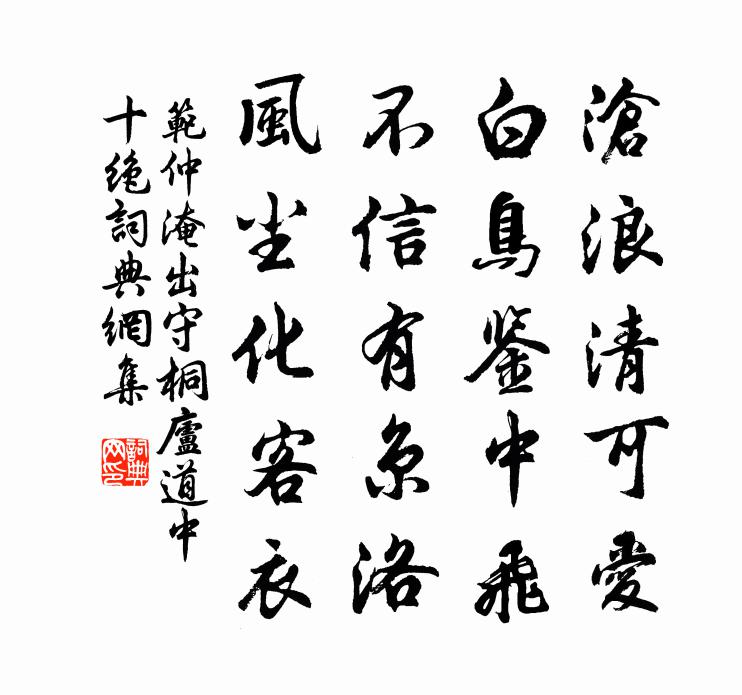 滄浪清可愛
白鳥鉴中飛
不信有京洛
風尘化客衣
範仲淹出守桐廬道中
十绝詞典網集
詞典
网印